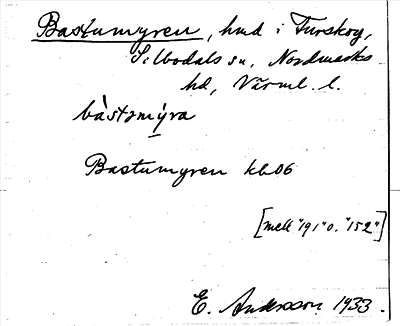 Bastumyren, hmd i Turskog,
Silbodals sn, Nordmarks
hd, Värml. l.
bàstomýra
Bastumyren kb06
[mell "191" o. "152"]
E. Andersson 1933.